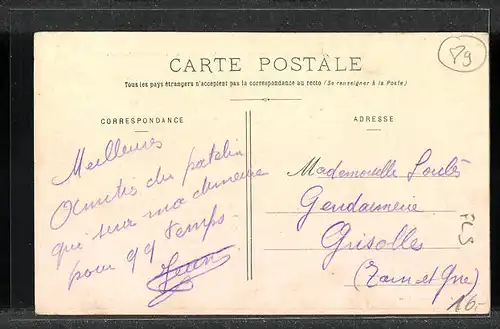 89
CARTE POSTALE
Tous les pays étrangers n'acceptent pas la correspondance au recto (Se renseigner à la Poste)
CORRESPONDANCE
Meilleures
Amitiés du patelin
qui sera ma demeure
pour qq temps.
ADRESSE
Mademoiselle
Gendarmerie
Grisolles
(Tarn et Gne)
PLS
16.-